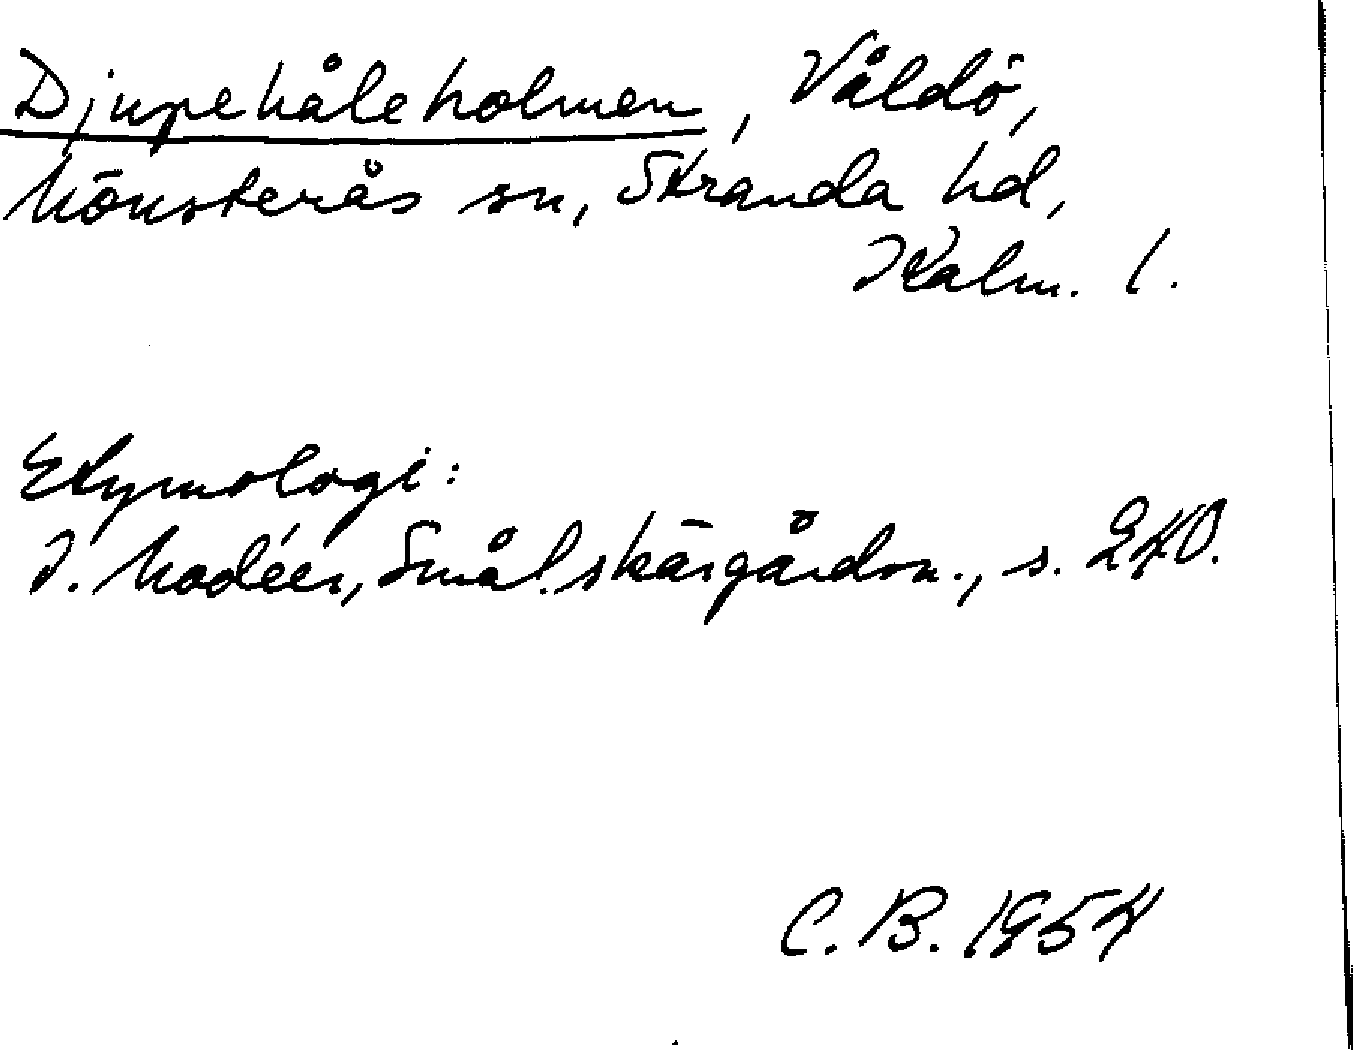 Djupehåleholmen, Våldö,
Mönsterås sn, Stranda hd,
Kalm. l.
Etymologi:
I. Modéer, Smål. skärgårdsn., s. 240.
C. B. 1954